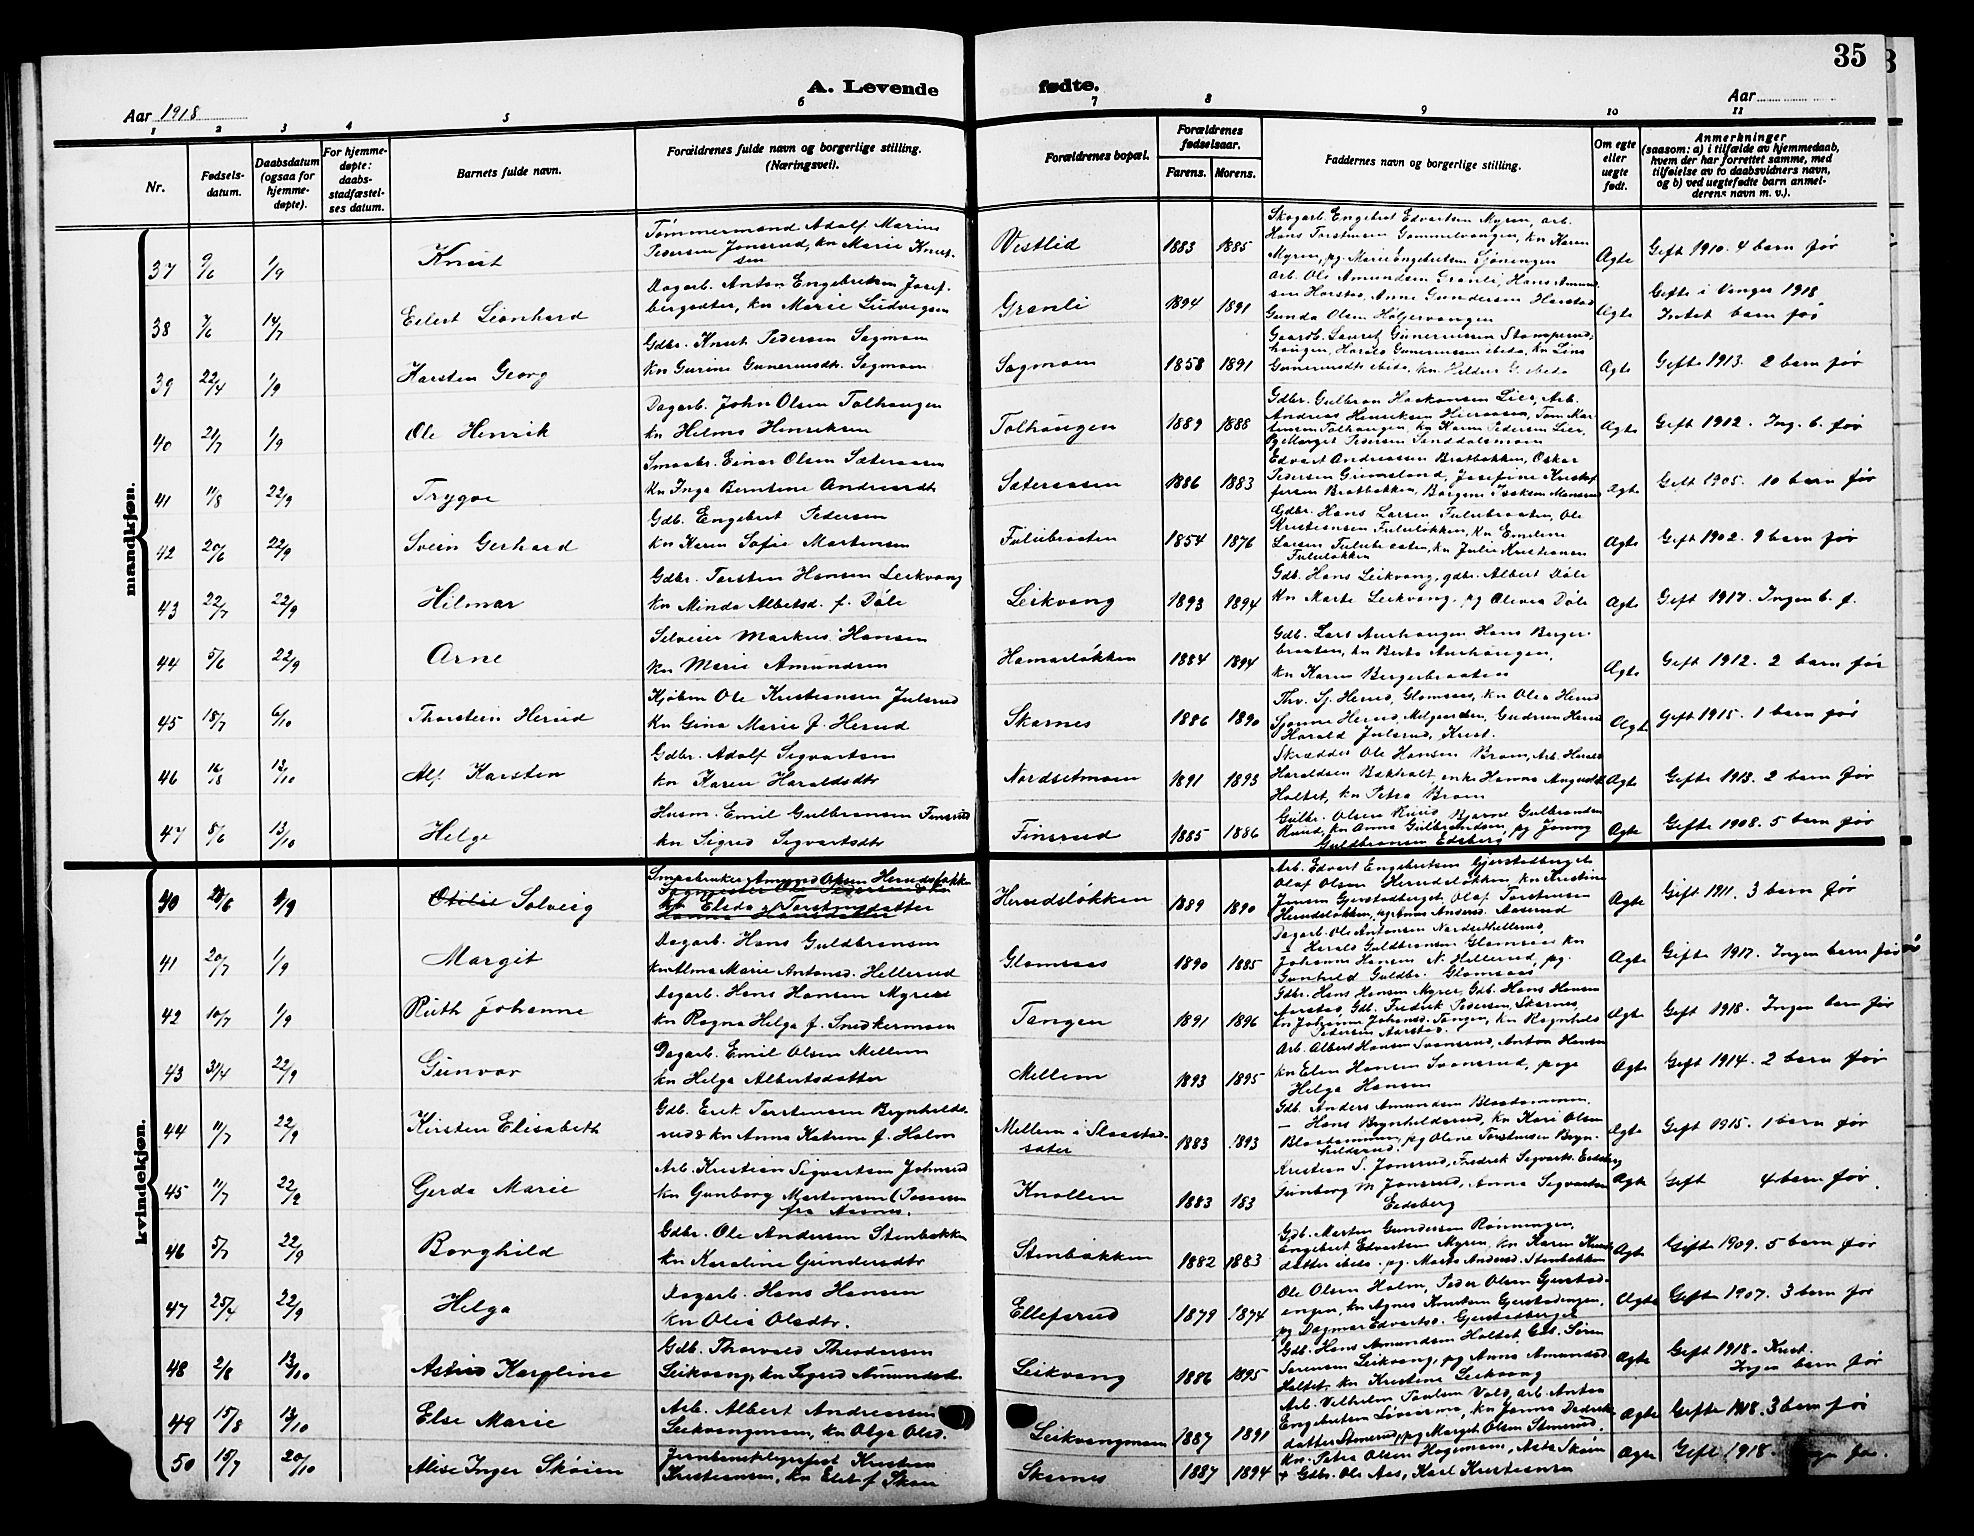 35
A. Levende fødte.
Aar 1918
Aar
1 2 3 4 5 6 7 8 9 10 11
Nr.
Fødsels-
datum.
Daabsdatum
(ogsaa for
hjemme-
døpte).
For hjemme-
døpte:
daabs-
stadfæstel-
ses datum.
Barnets fulde navn.
Forældrenes fulde navn og borgerlige stilling.
(Næringsvei).
Forældrenes bopæl.
Forældrenes
fødselsaar.
Farens. Morens.
Faddernes navn og borgerlige stilling.
Om egte
eller
uegte
født.
Anmerkninger
(saasom: a) i tilfælde av hjemmedaab,
hvem der har forrettet samme, med
tilføielse av to daabsvidners navn,
og b) ved uegtefødte barn anmel-
derens navn m. v.).
mandkjøn.
37 9/6 1/9 Knut
Tømmermand Adolf Marius
Pedersen Jonsrud, kn Marie Knut-
sen
Vestlid 1883 1885
Skogarb. Engebret Edvartsen Myren, arb.
Hans Torstensen Gammelvangen, kn Karen
Myren, pg. Marie Engebretsen
Ægte Gift 1910. 4 barn før
38 7/6 14/7 Eilert Leonhard
Dagarb. Anton Engebretsen
kn Marie Ludvigsen
Granli 1894 1891
Arb. Ole Amundsen Granli, Hans Amund-
sen Harstad, Anne Gundersen Harstad
Gunda Olsen
Ægte Gifte i Vinger 1918.
Intet barn før
39 22/4 1/9 Karsten Georg
Gdbr. Knut Pedersen Sagmoen
kn Gurine Guneriusdt. Sagmoen
Sagmoen 1858 1891
Gaardb. Lauritz Guneriussen
Harald Guneriussen ibid., kn Lina
Guneriusdt ibid.
Ægte Gifte 1913. 2 barn før
40 21/7 1/9 Ole Henrik
Dagarb. John Olsen Tolhaugen
kn Helma Henriksen
Tolhaugen 1889 1888
Gdbr. Gulbran Haakonsen Lier, Arb.
Andreas Henriksen
Tolhaugen, kn Karen Pedersen Lier,
Pg Margit Pedersen
Ægte Gift 1912. Ing. b. før
41 11/8 22/9 Trygve
Smaabr. Einar Olsen Sæteraasen
kn Inga Berntine Andreasdt
Sæteraasen 1886 1883
Edvart Andreassen Bratbakken, Oskar
Pedersen Grimsland, Josefine Kristof-
fersen Bratbakken
Ægte Gift 1905. 10 barn før
42 20/6 22/9 Svein Gerhard
Gdb. Engebret Pedersen
kn Karen Sofie Martensen
Fulubraaten 1854 1876
Gdbr. Hans Larsen Fulubraaten, Ole
Kristiansen Fululøkken, kn Emiline
Larsen Fulubraaten, kn Julie Kristiansen
Fululøkken
Ægte Gift 1902. 9 barn før
43 22/7 22/9 Hilmar
Gdbr. Torsten Hansen Leikvang
kn Minda Albertsd. f. Døle
Leikvang 1893 1894
Gdb. Hans Leikvang, gdbr. Albert Døle
kn Marte Leikvang, pg Olivia Døle
Ægte Gift 1917. Ingen b. f.
44 5/6 22/9 Arne
Selveier Markus Hansen
kn Marie Amundsen
Hamarløkken 1884 1894
Gdb. Lars Aurhaugen Hans Berger-
braaten, kn Berta Aurhaugen,
kn Karen Bergerbraaten
Ægte Gift 1912. 2 barn før
45 18/7 6/10 Thorstein Herud
Kjøbm Ole Kristiansen Julsrud
kn Gina Marie f. Herud
Skarnes 1886 1890
Thv. Sj. Herud, Glomsaas, kn Olea Herud
Herud, Melgaarden, Gudrun Herud
Harald Julsrud, Krist.
Ægte Gift 1915. 1 barn før
46 16/8 13/10 Alf Karsten
Gdbr. Adolf Sigvartsen
kn Karen Haraldsdtr
Nordsetmoen 1891 1893
Skrædder Ole Hansen Broen, Arb. Harald
Haraldsen Bakhalt, enke Hanna
Holtet, kn Petra Broen
Ægte Gifte 1913. 2 barn før
47 5/6 13/10 Helge
Husm. Emil Gulbransen Finsrud
kn Sigrid Sigvartsdtr
Finsrud 1885 1886
Gulbr. Olsen Ruud Bjarne Gulbrandsen
Ruud, kn Anna Gulbrandsen, pg Jenny
Guldbransen Edsberg
Ægte Gifte 1908. 5 barn før
kvindekjøn.
40 28/6 1/9 Otilie Solveig
Smaabruker Amund Olsen Herudsløkken
kn Elida Torstensdatter
Herudsløkken 1889 1890
Arb. Edvart Engebretsen Gjerstadberget
Olaf Olsen Herudsløkken, kn Kristine
Jensen Gjerstadberget, Olaf Torstensen
Herudsløkken, pg Anna Anders. Aaserud
Ægte Gift 1911. 3 barn før
41 20/7 1/9 Margit
Dagarb. Hans Guldbransen
kn Alma Marie Antonsd. Hellerud
Glomsaas 1890 1885
Dagarb. Ole Antonsen Nordsethellerud,
" Harald Guldbransen Glomsaas kn
Johanne Hansen N. Hellerud, pg.
Gunhild Guldbr. Glomsaas
Ægte Gifte 1917. Ingen barn før
42 10/7 1/9 Ruth Johanne
Dagarb. Hans Hansen Myrer
kn Ragna Helga f. Snedkermoen
Tangen 1891 1896
Gdbr. Hans Hansen Myrer, Gdb. Hans Hansen
Aarstad, Gdb. Fredrik Pedersen, Skarnes,
kn Johanne Johansd. Tangen, kn Ragnhild
Pedersen Aarstad.
Ægte Gift 1918. Ingen barn før
43 3/4 22/9 Gunvor
Dagarb. Emil Olsen Mellem
kn Helga Albertsdatter
Mellem 1893 1895
Arb. Albert Hansen Svensrud, Anton Hansen
kn Elen Hansen Svensrud, pige
Helga Hansen
Ægte Gift 1914. 2 barn før
44 11/7 22/9 Kirsten Elisabeth
Gdb. Erik Torstensen Brynhilds-
rud & kn Anna Katrine f. Holm
Mellem i Slaastad-
sæter 1883 1893
Gdb. Anders Amundsen Blaatammen,
— Hans Brynhildsrud, kn Kari Olsen
Blaatammen, pg Oline Torstensen Bryn-
hildsrud.
Ægte Gift 1915. 1 barn før
45 11/7 22/9 Gerda Marie
Arb. Kristian Sigvartsen Johnsrud
kn Gunborg Martensen
fra Aasnes.
Knollen 1883 183
Kristian S. Jonsrud, Fredrik Sigvarts. Eidsberg
Gunborg M Jonsrud, Anna Sigvartsen
Eidsberg
Ægte Gift 4 barn før
46 5/7 22/9 Borghild
Gdbr. Ole Andersen Stenbakken
kn Karoline Gundersdtr
Stenbakken 1882 1883
Gdb. Marten Gundersen Rønningen,
Engebret Edvartsen Myren, kn Karen Knuds-
datter ibid. pg. Marta Andersd. Stenbakken
Ægte Gifte 1909. 5 barn før
47 25/4 22/9 Helga
Dagarb. Hans Hansen
kn Olia Olsdtr.
Ellefsrud 1879 1874
Ole Olsen Holm, Peder Olsen Gjerstad-
engen, kn Agnes Knutsen Gjerstadengen,
pg Dagmar Edvartsd. Gjerstadberget
Ægte Gifte 1907. 3 barn før
48 2/8 13/10 Astrid Karoline
Gdb. Thorvald Theodorsen
Leikvang, kn Sigrid Amundsd.
Leikvang 1886 1895
Gdb. Hans Amundsen Holtet, Gdb. Søren
Sørensen Leikvang, pg Anna Amundsd
Holtet, kn Kristine Leikvang
Ægte Gift 1918. Krist.
Ingen barn før
49 15/8 13/10 Else Marie
Arb. Albert Andreassen
Leikvangmoen, kn Olga Olsd.
Leikvangmoen 1887 1891
Arb. Vilhelm Paulsen Vold, arb. Anton
Engebretsen, kn Janna Didrik-
datter Stenerud, pg Margit Olsen Stenerud
Ægte Gifte 1908. 3 barn før
50 15/7 20/10 Alise Inger Skøien
Kristian
Kristiansen, kn Elel f. Skøien
Skarnes 1887 1894
kn. Petra Olsen Hagemoen, Asta Skøien
+ Gdbr. Ole Aas, Karl Kristiansen
Ægte Gift 1918. før.